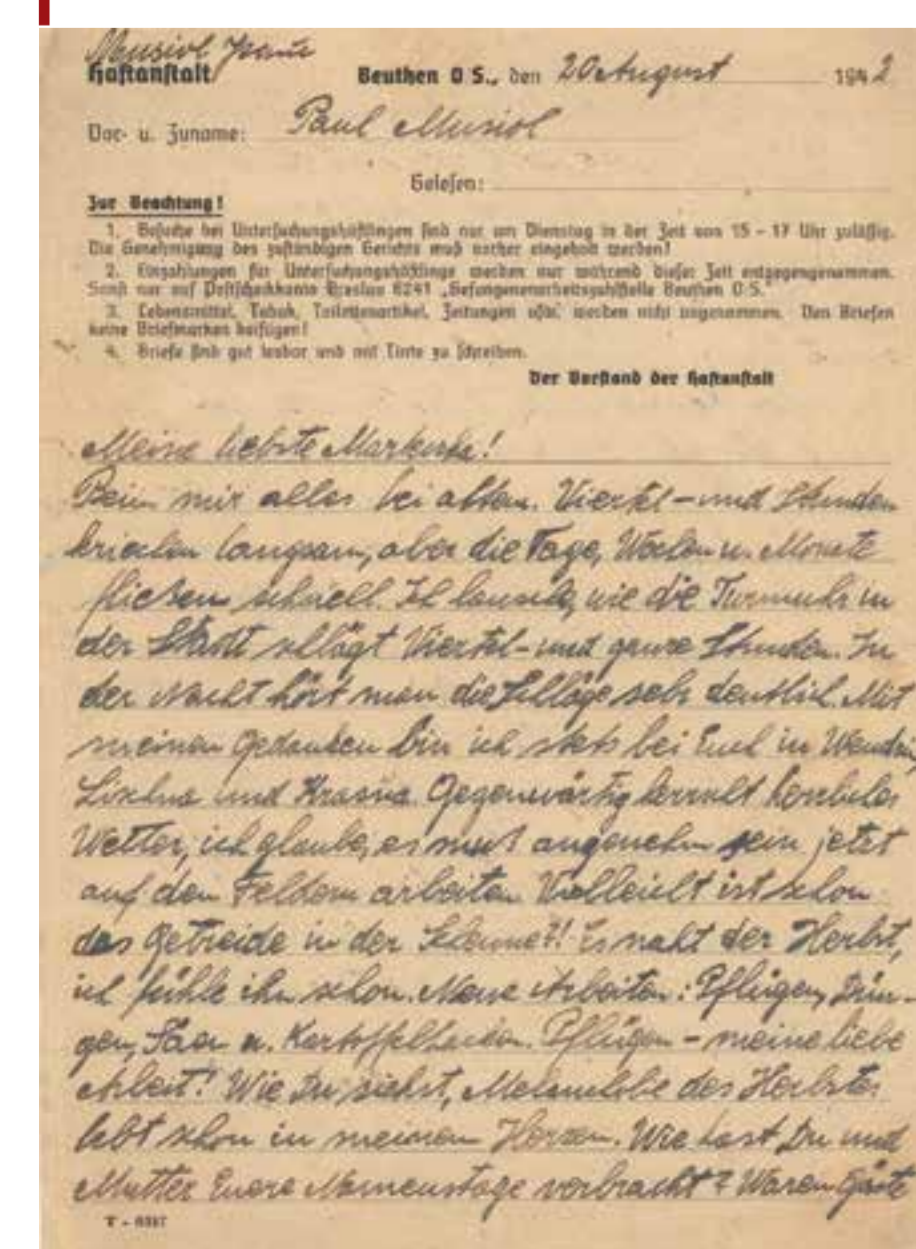 Musiol Paul
Haftanstalt Beuthen O S., den 20 August 1942
Vor- u. Zuname: Paul Musiol
Gelesen:
Zur Beachtung!
1. Besuche bei Untersuchungshäftlingen sind nur am Dienstag in der Zeit von 15 – 17 Uhr zulässig.
Die Genehmigung des zuständigen Gerichts muß vorher eingeholt werden!
2. Einzahlungen für Untersuchungshäftlinge werden nur während dieser Zeit entgegengenommen.
Sonst nur auf Postscheckkonto Breslau 6241 „Gefangenenarbeitszahlstelle Beuthen O S."
3. Lebensmittel, Tabak, Toilettenartikel, Zeitungen usw. werden nicht angenommen. Den Briefen
keine Briefmarken beifügen!
4. Briefe sind gut lesbar und mit Tinte zu schreiben.
Der Vorstand der Haftanstalt
Meine liebste
Beim mir alles bei alten. Viertel- und Stunden
kriechen langsam, aber die Tage, Wochen u. Monate
fliehen schnell. Ich lausche, wie die Turmuhr in
der Stadt schlägt Viertel- und ganze Stunden. In
der Nacht hört man die Schläge sehr deutlich. Mit
meinen Gedanken bin ich stets bei Euch in Wendrin,
Lischna und Krasna. Gegenwärtig herrscht herrliches
Wetter, ich glaube, es muß angenehm sein jetzt
auf den Feldern arbeiten. Vielleicht ist schon
das Getreide in der Scheune?! Es naht der Herbst,
ich fühle ihn schon. Meine Arbeiten: Pflügen, Dün-
gen, Säen u. Pflügen – meine liebe
Arbeit! Wie Du siehst, Melancholie des Herbstes
lebt schon in meinem Herzen. Wie hast Du und
Mutter Euere Namenstage verbracht? Waren Gäste
T - 0317